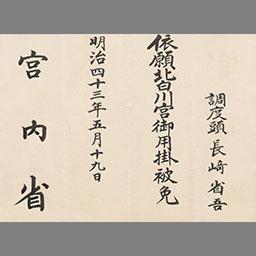 調度頭長﨑省吾
依願北白川宮御用掛被免
明治四十三年五月十九日
宮内省